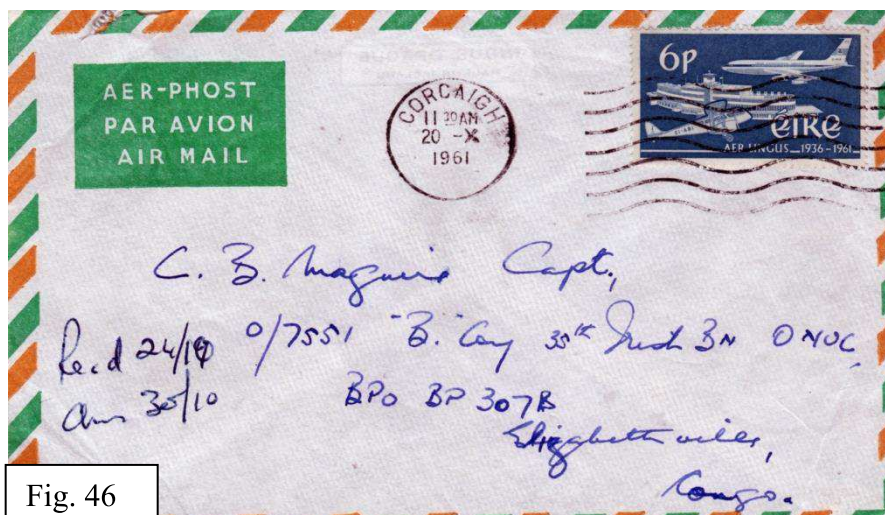 AER-PHOST
PAR AVION
AIR MAIL
CORCAIGH
11 30 AM
20 -X
1961
6P
ÉIRE
AER LINGUS 1936-1961
C. B. Maguire Capt.,
Rec.d 24/10 0/7551 "B." Coy 35th Irish BN ONUC,
Ans 30/10 BPO BP 307B
Elizabethville,
Congo.
Fig. 46